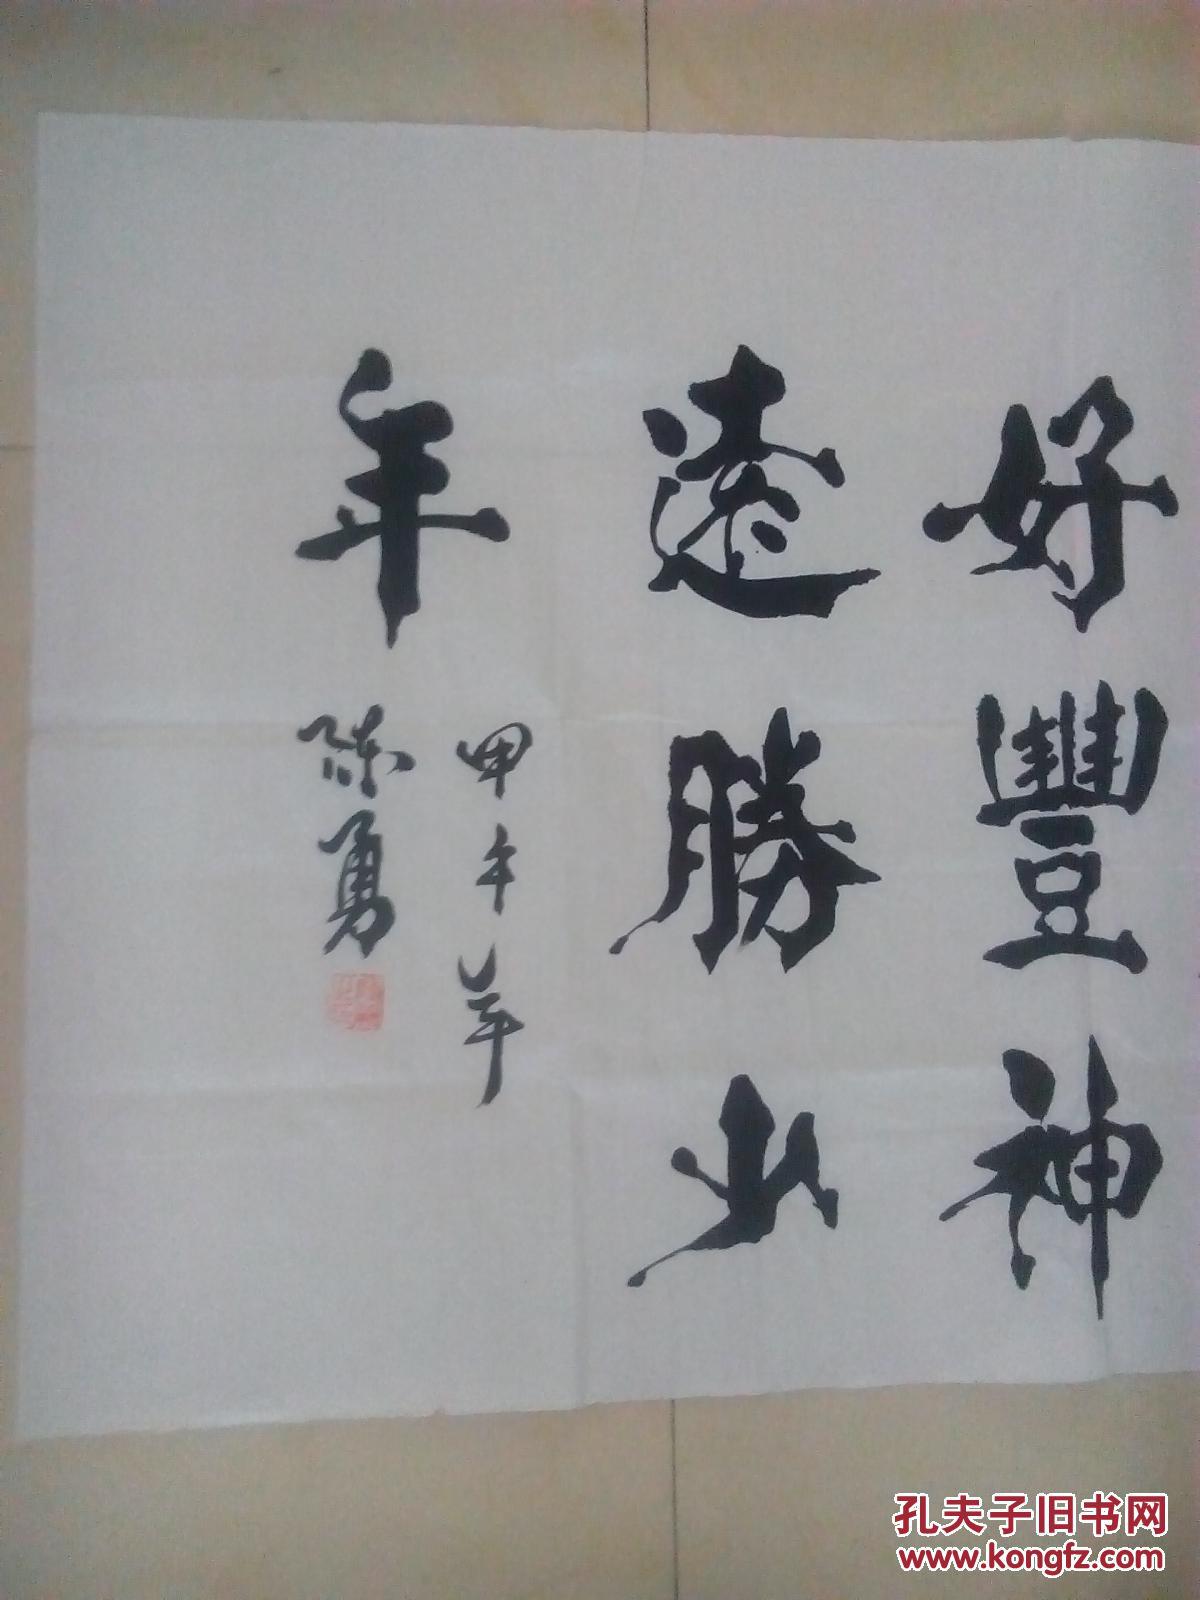 好豐神
遠勝少
年
甲午年
陈勇
孔夫子旧书网
www.kongfz.com